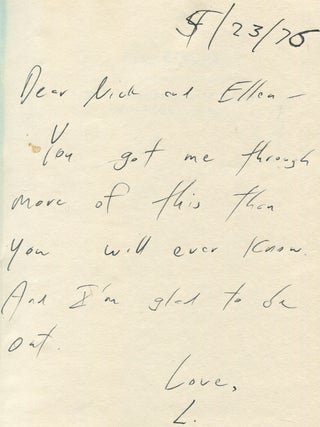 5/23/75
Dear Nick and Ellen —
You got me through
more of this than
you will ever know.
And I'm glad to be
out.
Love,
L.